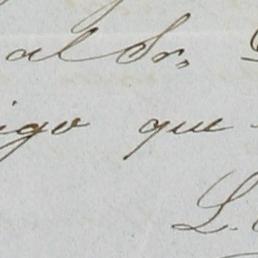 al Sr.
igo que
L.